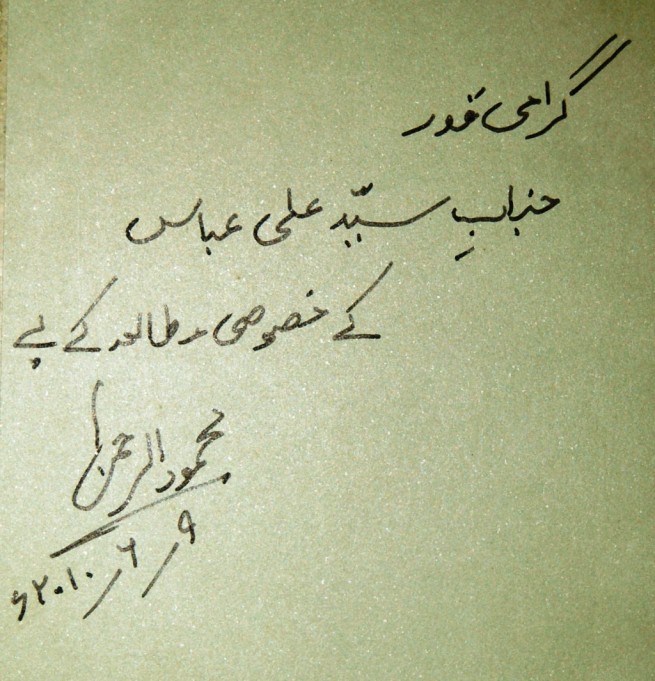 گرامی قدر
جنابِ سیّد علی عباس
کے خصوصی مطالعہ کے لیے
محمود الرحمن
۹/۶/۲۰۱۰ء